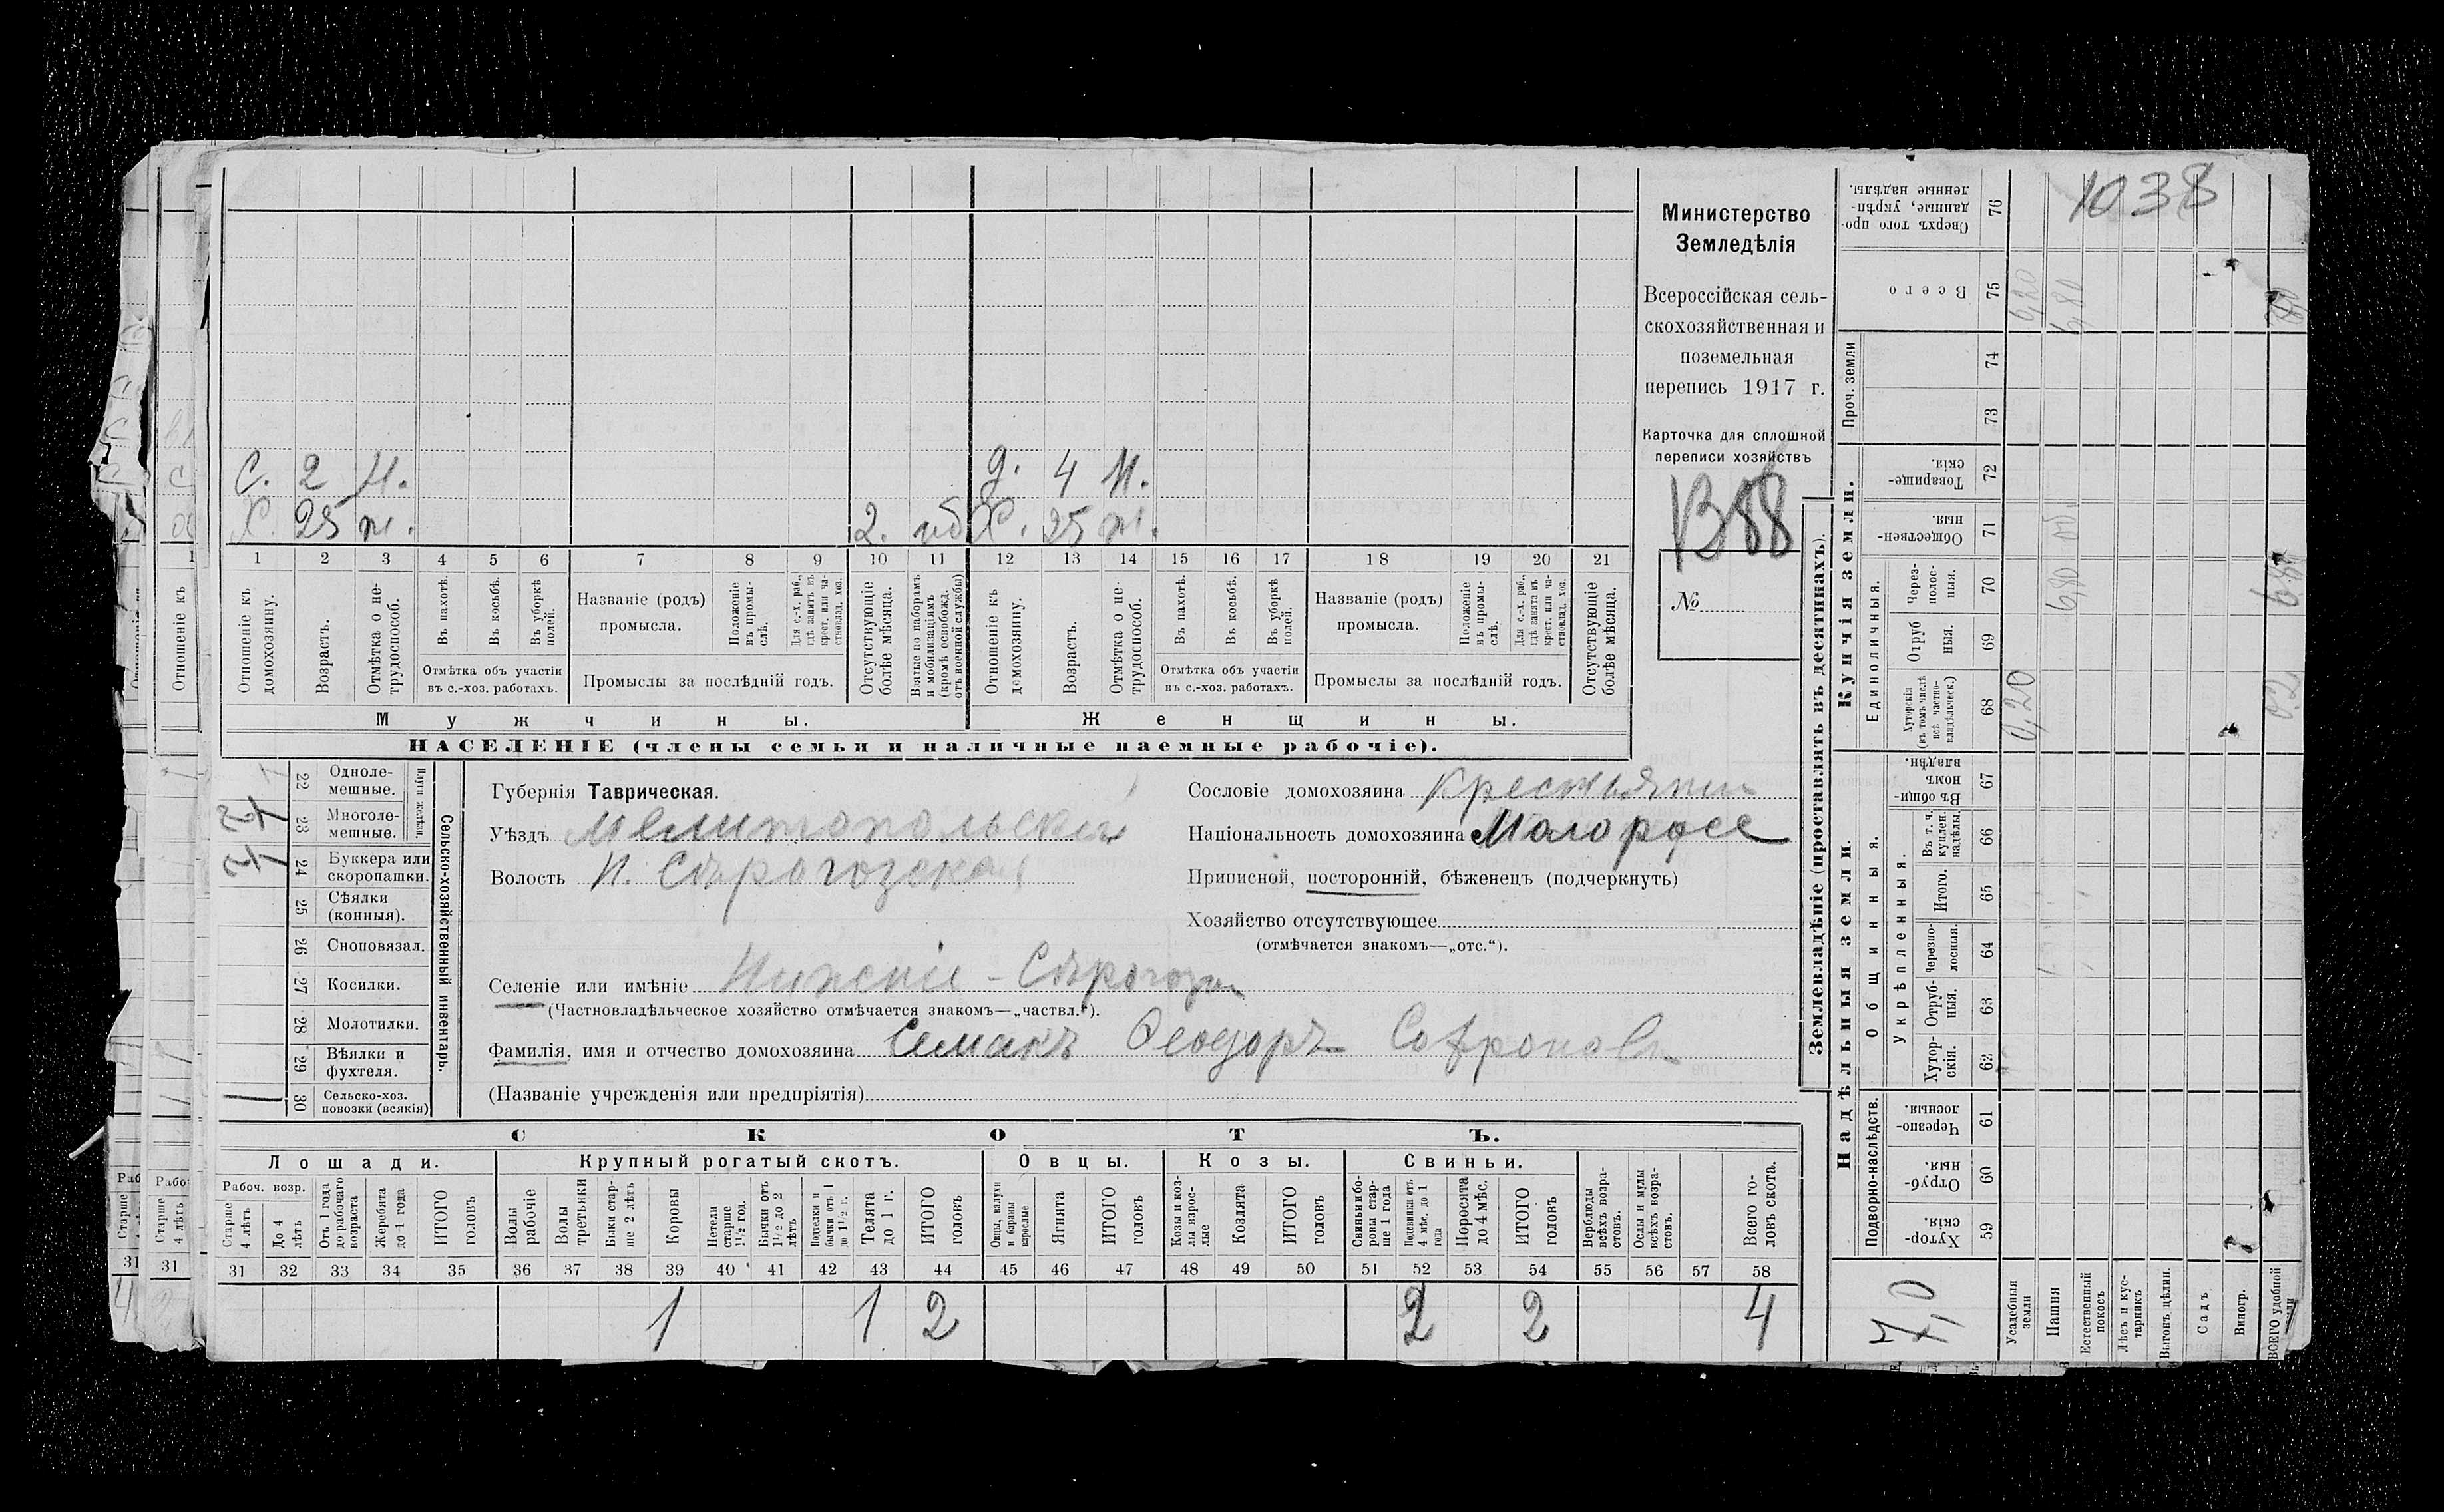 С. 2 н. д. 4 н.
Х. 25 т. 2. мб Х. 25 т.
1 2 3 4 5 6 7 8 9 10 11 12 13 14 15 16 17 18 19 20 21
Отношеніе къ домохозяину.
Возрастъ.
Отмѣтка о не-
трудоспособ.
Въ пахотѣ.
Въ косьбѣ.
Въ уборкѣ
полей.
Отмѣтка объ участіи
въ с.-хоз. работахъ.
Названіе (родъ)
промысла.
Положеніе
въ промы-
слѣ.
Для с.-х. раб.,
гдѣ занятъ въ
крест. или ча-
стновлад. хоз.
Промыслы за послѣдній годъ.
Отсутствующіе
болѣе мѣсяца.
Взятые по наборамъ
и мобилизаціямъ
(кромѣ освобожд.
отъ военной службы)
Отношеніе къ
домохозяину.
Возрастъ.
Отмѣтка о не-
трудоспособ.
Въ пахотѣ.
Въ косьбѣ.
Въ уборкѣ
полей.
Отмѣтка объ участіи
въ с.-хоз. работахъ.
Названіе (родъ)
промысла.
Положеніе
въ промы-
слѣ.
Для с.-х. раб.,
гдѣ занята въ
крест. или ча-
стновлад. хоз.
Промыслы за послѣдній годъ.
Отсутствующіе
болѣе мѣсяца.
Мужчины. Женщины.
НАСЕЛЕНІЕ (члены семьи и наличные наемные рабочіе).
Министерство
Земледѣлія
Всероссійская сель-
скохозяйственная и
поземельная
перепись 1917 г.
Карточка для сплошной
переписи хозяйствъ
№
Сельско-хозяйственный инвентарь.
22 Одноле-
мешные.
23 Многоле-
мешные.
24 Буккера или
скоропашки.
25 Сѣялки
(конныя).
26 Сноповязал.
27 Косилки.
28 Молотилки.
29 Вѣялки и
фухтеля.
30 Сельско-хоз.
повозки (всякія)
1
Губернія Таврическая.
Уѣздъ Мелитопольскій
Волость Н. Сѣрогозская
Сословіе домохозяина Крестьянин
Національность домохозяина Малоросс
Приписной, посторонній, бѣженецъ (подчеркнуть)
Хозяйство отсутствующее
(отмѣчается знакомъ—„отс.“).
Селеніе или имѣніе Нижніе - Сѣрогозы
(Частновладѣльческое хозяйство отмѣчается знакомъ—„частвл.“).
Фамилія, имя и отчество домохозяина Семакъ Ѳеодоръ Софронов
(Названіе учрежденія или предпріятія)
СКОТЪ.
Лошади. Крупный рогатый скотъ. Овцы. Козы. Свиньи.
Рабоч. возр.
Старше
4 лѣтъ
До 4
лѣтъ
Отъ 1 года
до рабочаго
возраста
Жеребята
до 1 года
ИТОГО
головъ
Волы
рабочіе
Волы
третьяки
Быки стар-
ше 2 лѣтъ
Коровы
Нетели
старше
1½ год.
Бычки отъ
1½ до 2
лѣтъ
Подтелки и
бычки отъ 1
до 1½ г.
Телята
до 1 г.
ИТОГО
головъ
Овцы, валухи
и бараны
взрослые
Ягнята
ИТОГО
головъ
Козы и коз-
лы взрос-
лые
Козлята
ИТОГО
головъ
Свиньи и бо-
ровы стар-
ше 1 года
Подсвинки отъ
4 мѣс. до 1
года
Поросята
до 4 мѣс.
ИТОГО
головъ
Верблюды
всѣхъ возра-
стовъ.
Ослы и мулы
всѣхъ возра-
стовъ.
Всего го-
ловъ скота.
31 32 33 34 35 36 37 38 39 40 41 42 43 44 45 46 47 48 49 50 51 52 53 54 55 56 57 58
1 1 2 2 2 4
Землевладѣніе (проставлять въ десятинахъ).
1038
Сверхъ того про-
данные, укрѣп-
ленные надѣлы.
76
Всего
75
6,80
Проч. земли
74
73
Купчія земли.
Товарище-
скія.
72
Обществен-
ныя.
71
Единоличныя.
Через-
полос-
ныя.
70
6,80
Отруб
ныя.
69
Хуторскія
(въ томъ числѣ
всѣ частно-
владѣльческ.)
68
0,20
Надѣльныя земли.
Общинныя.
Въ общи-
номъ
владѣн.
67
Укрѣпленныя.
Въ т. ч.
куплен.
надѣлы.
66
Итого.
65
Черезпо-
лосныя.
64
Отруб-
ныя.
63
Хутор-
скія.
62
Подворно-наслѣдств.
Черезпо-
лосныя.
61
Отруб-
ныя.
60
Хутор-
скія.
59
7,0
Усадебныя
земли
Пашня
Естественный
покосъ
Лѣсъ и кус-
тарникъ
Выгонъ цѣлин.
Садъ
Виногр.
ВСЕГО удобной